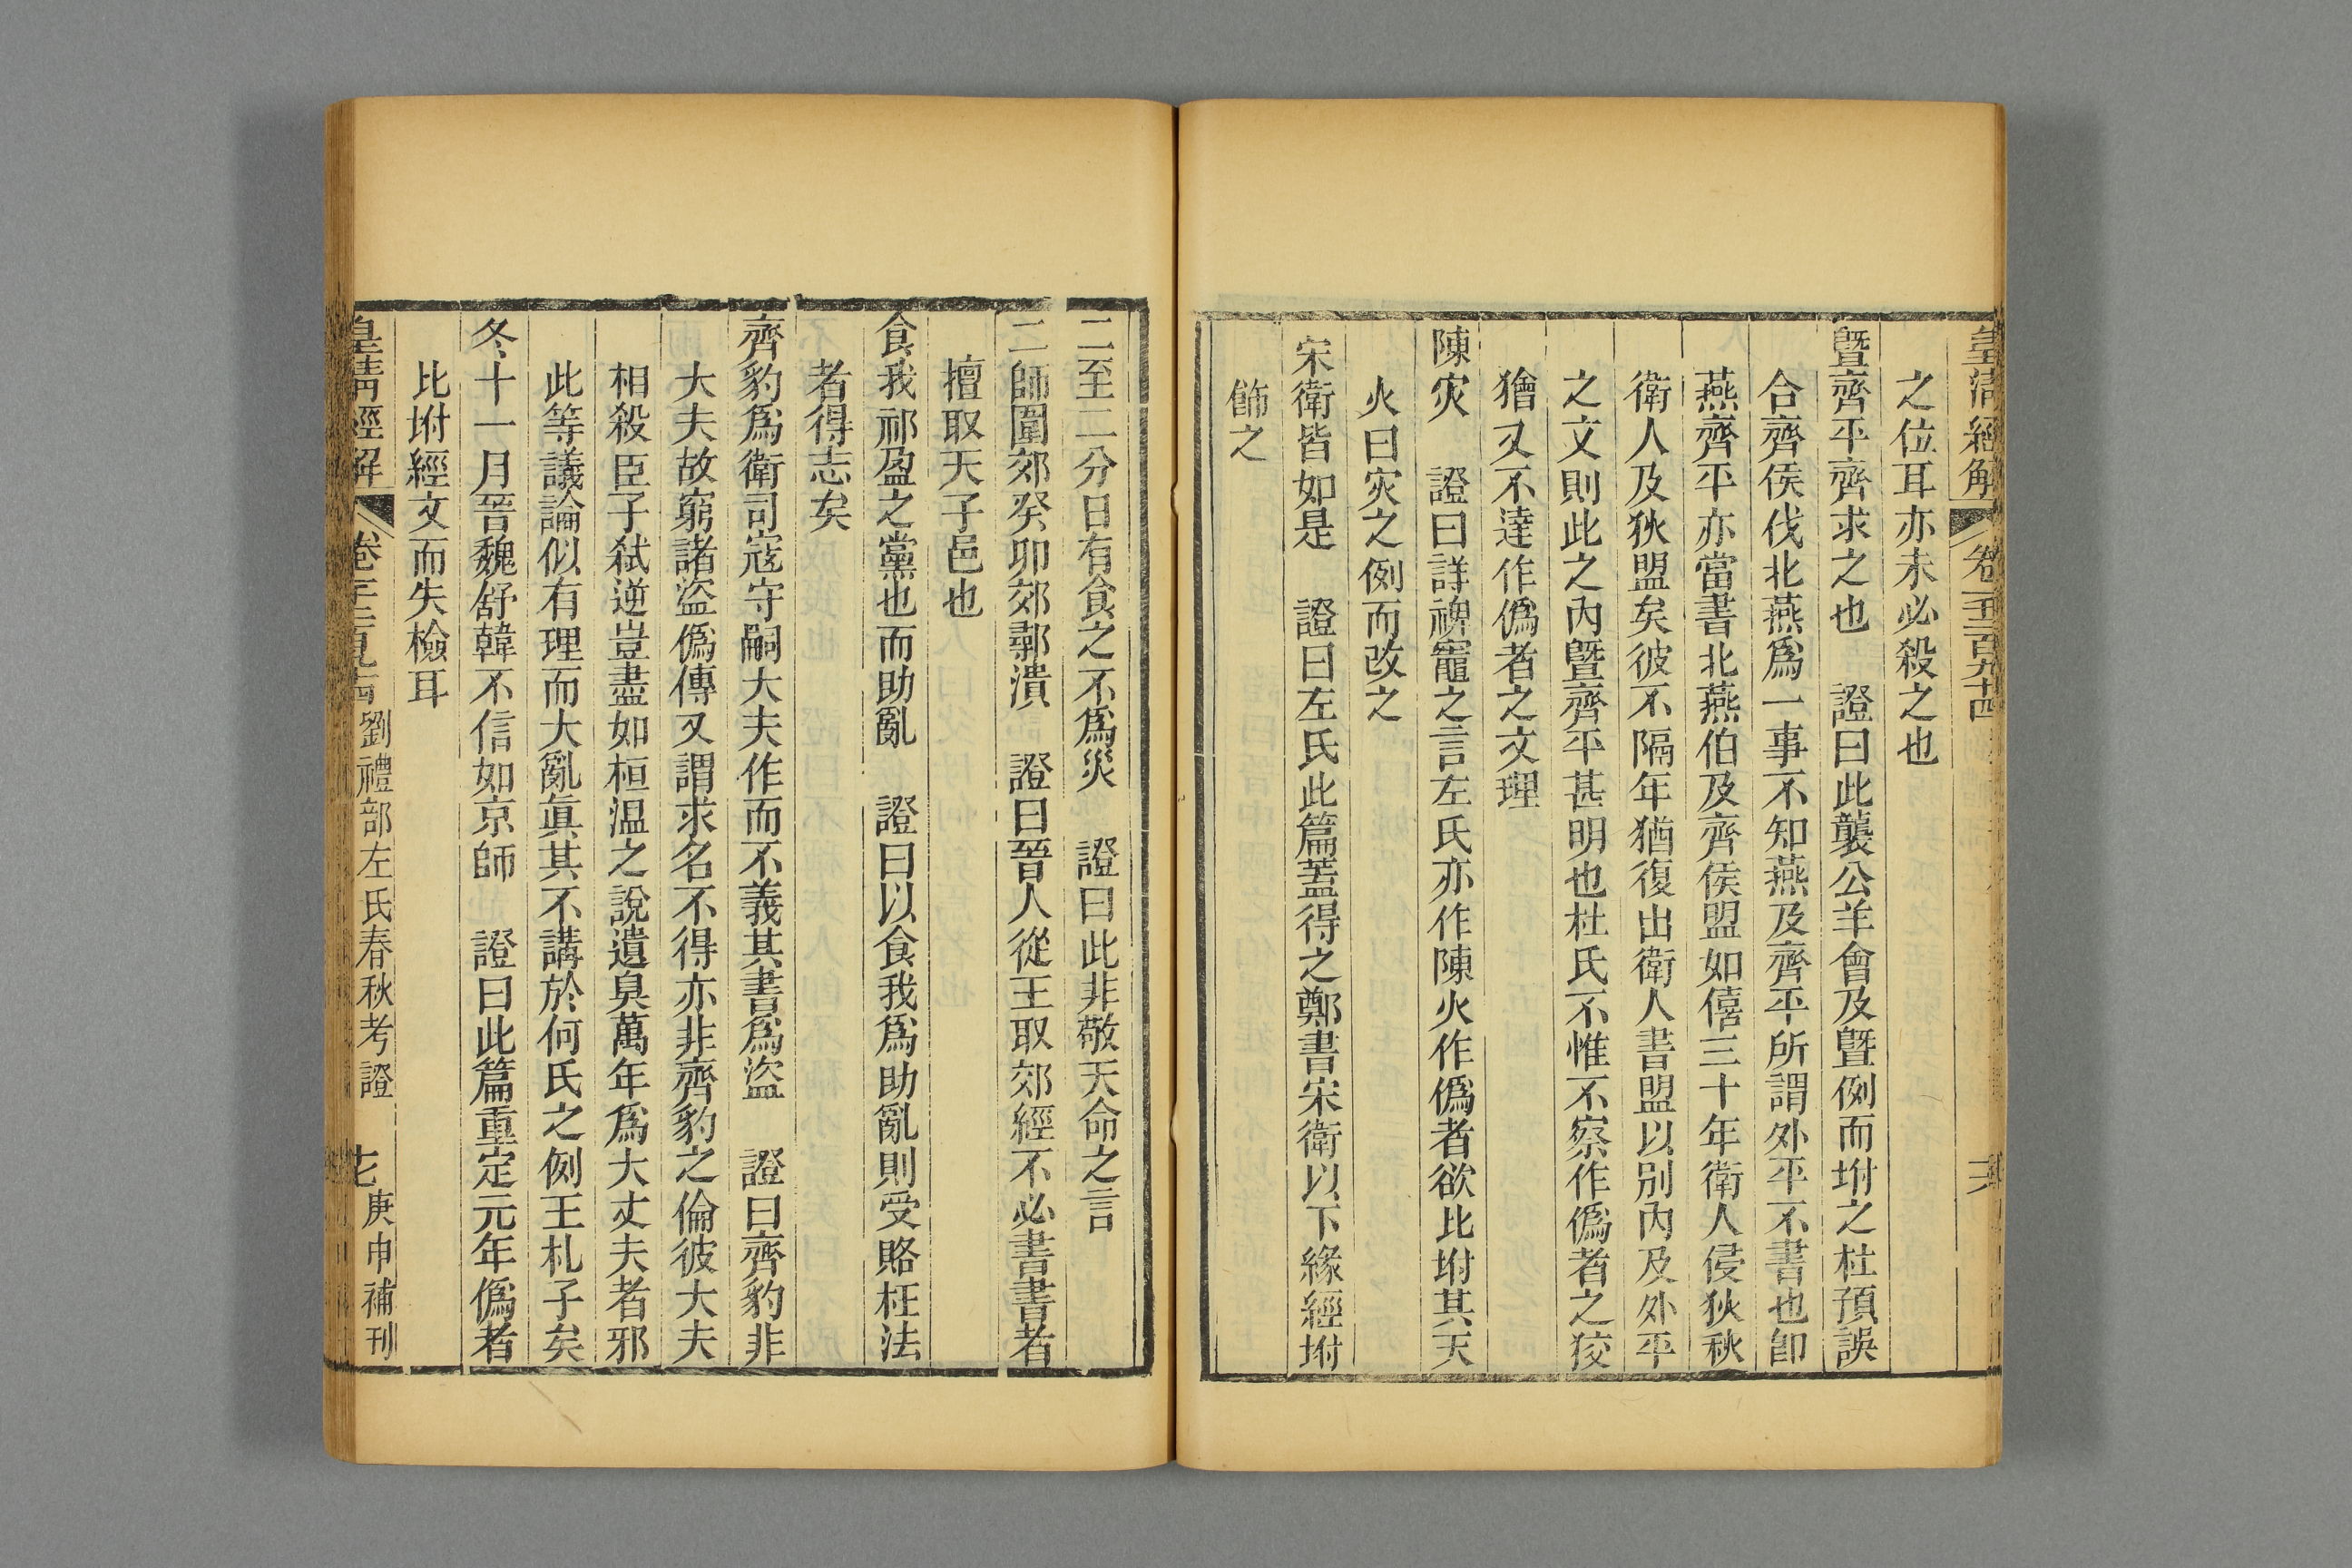 皇清經解 卷一千二百九十四
之位耳亦未必殺之也
暨齊平齊求之也 證曰此襲公羊會及暨例而坿之杜預誤
合齊侯伐北燕爲一事不知燕及齊平所謂外平不書也卽
燕齊平亦當書北燕伯及齊侯盟如僖三十年衛人侵狄秋
衛人及狄盟矣彼不隔年猶復出衛人書盟以別內及外平
之文則此之內暨齊平甚明也杜氏不惟不察作僞者之狡
獪又不達作僞者之文理
陳灾 證曰詳裨竈之言左氏亦作陳火作僞者欲比坿其天
火曰灾之例而改之
宋衛皆如是 證曰左氏此篇蓋得之鄭書宋衛以下緣經坿
飾之
二至二分日有食之不爲災 證曰此非敬天命之言
二師圍郊癸卯郊鄩潰 證曰晉人從王取郊經不必書書者
擅取天子邑也
食我祁盈之黨也而助亂 證曰以食我爲助亂則受賂枉法
者得志矣
齊豹爲衛司寇守嗣大夫作而不義其書爲盜 證曰齊豹非
大夫故窮諸盜僞傳又謂求名不得亦非齊豹之倫彼大夫
相殺臣子弒逆豈盡如桓温之說遺臭萬年爲大丈夫者邪
此等議論似有理而大亂眞其不講於何氏之例王札子矣
冬十一月晉魏舒韓不信如京師 證曰此篇重定元年僞者
比坿經文而失檢耳
皇清經解 卷 劉禮部左氏春秋考證 七 庚申補刊